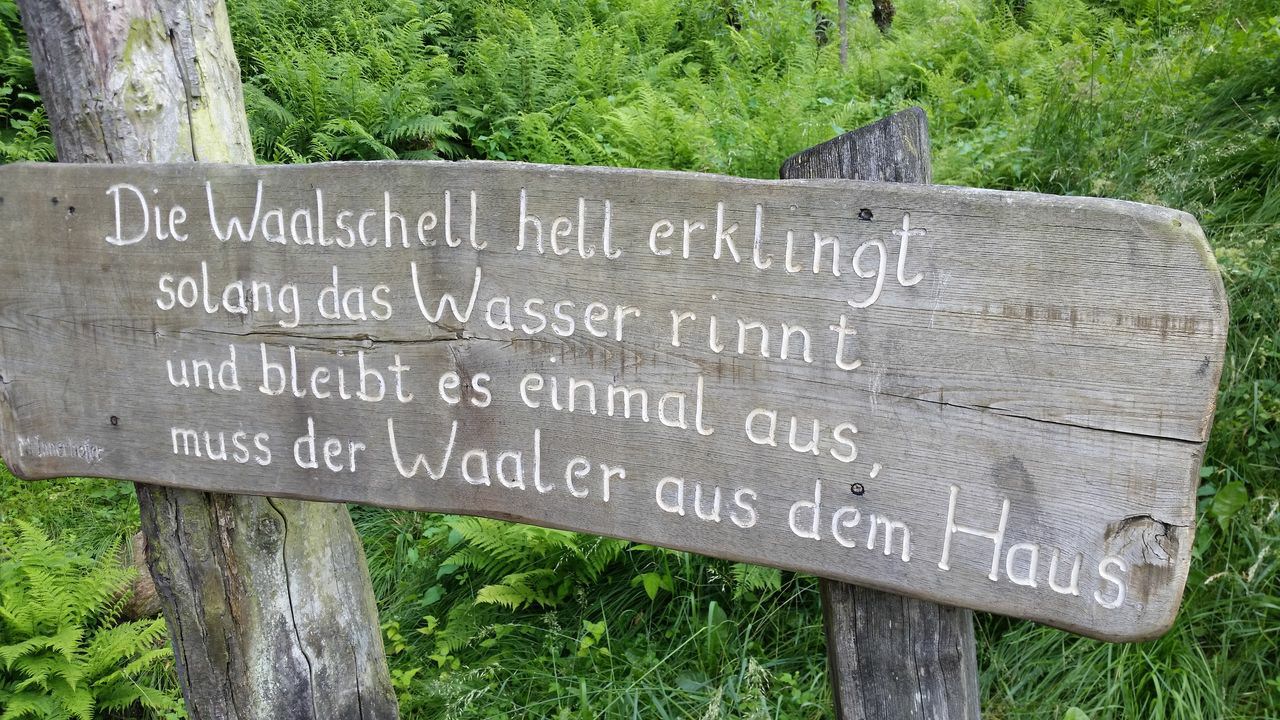 Die Waalschell hell erklingt
solang das Wasser rinnt
und bleibt es einmal aus,
muss der Waaler aus dem Haus
M. Innerhofer